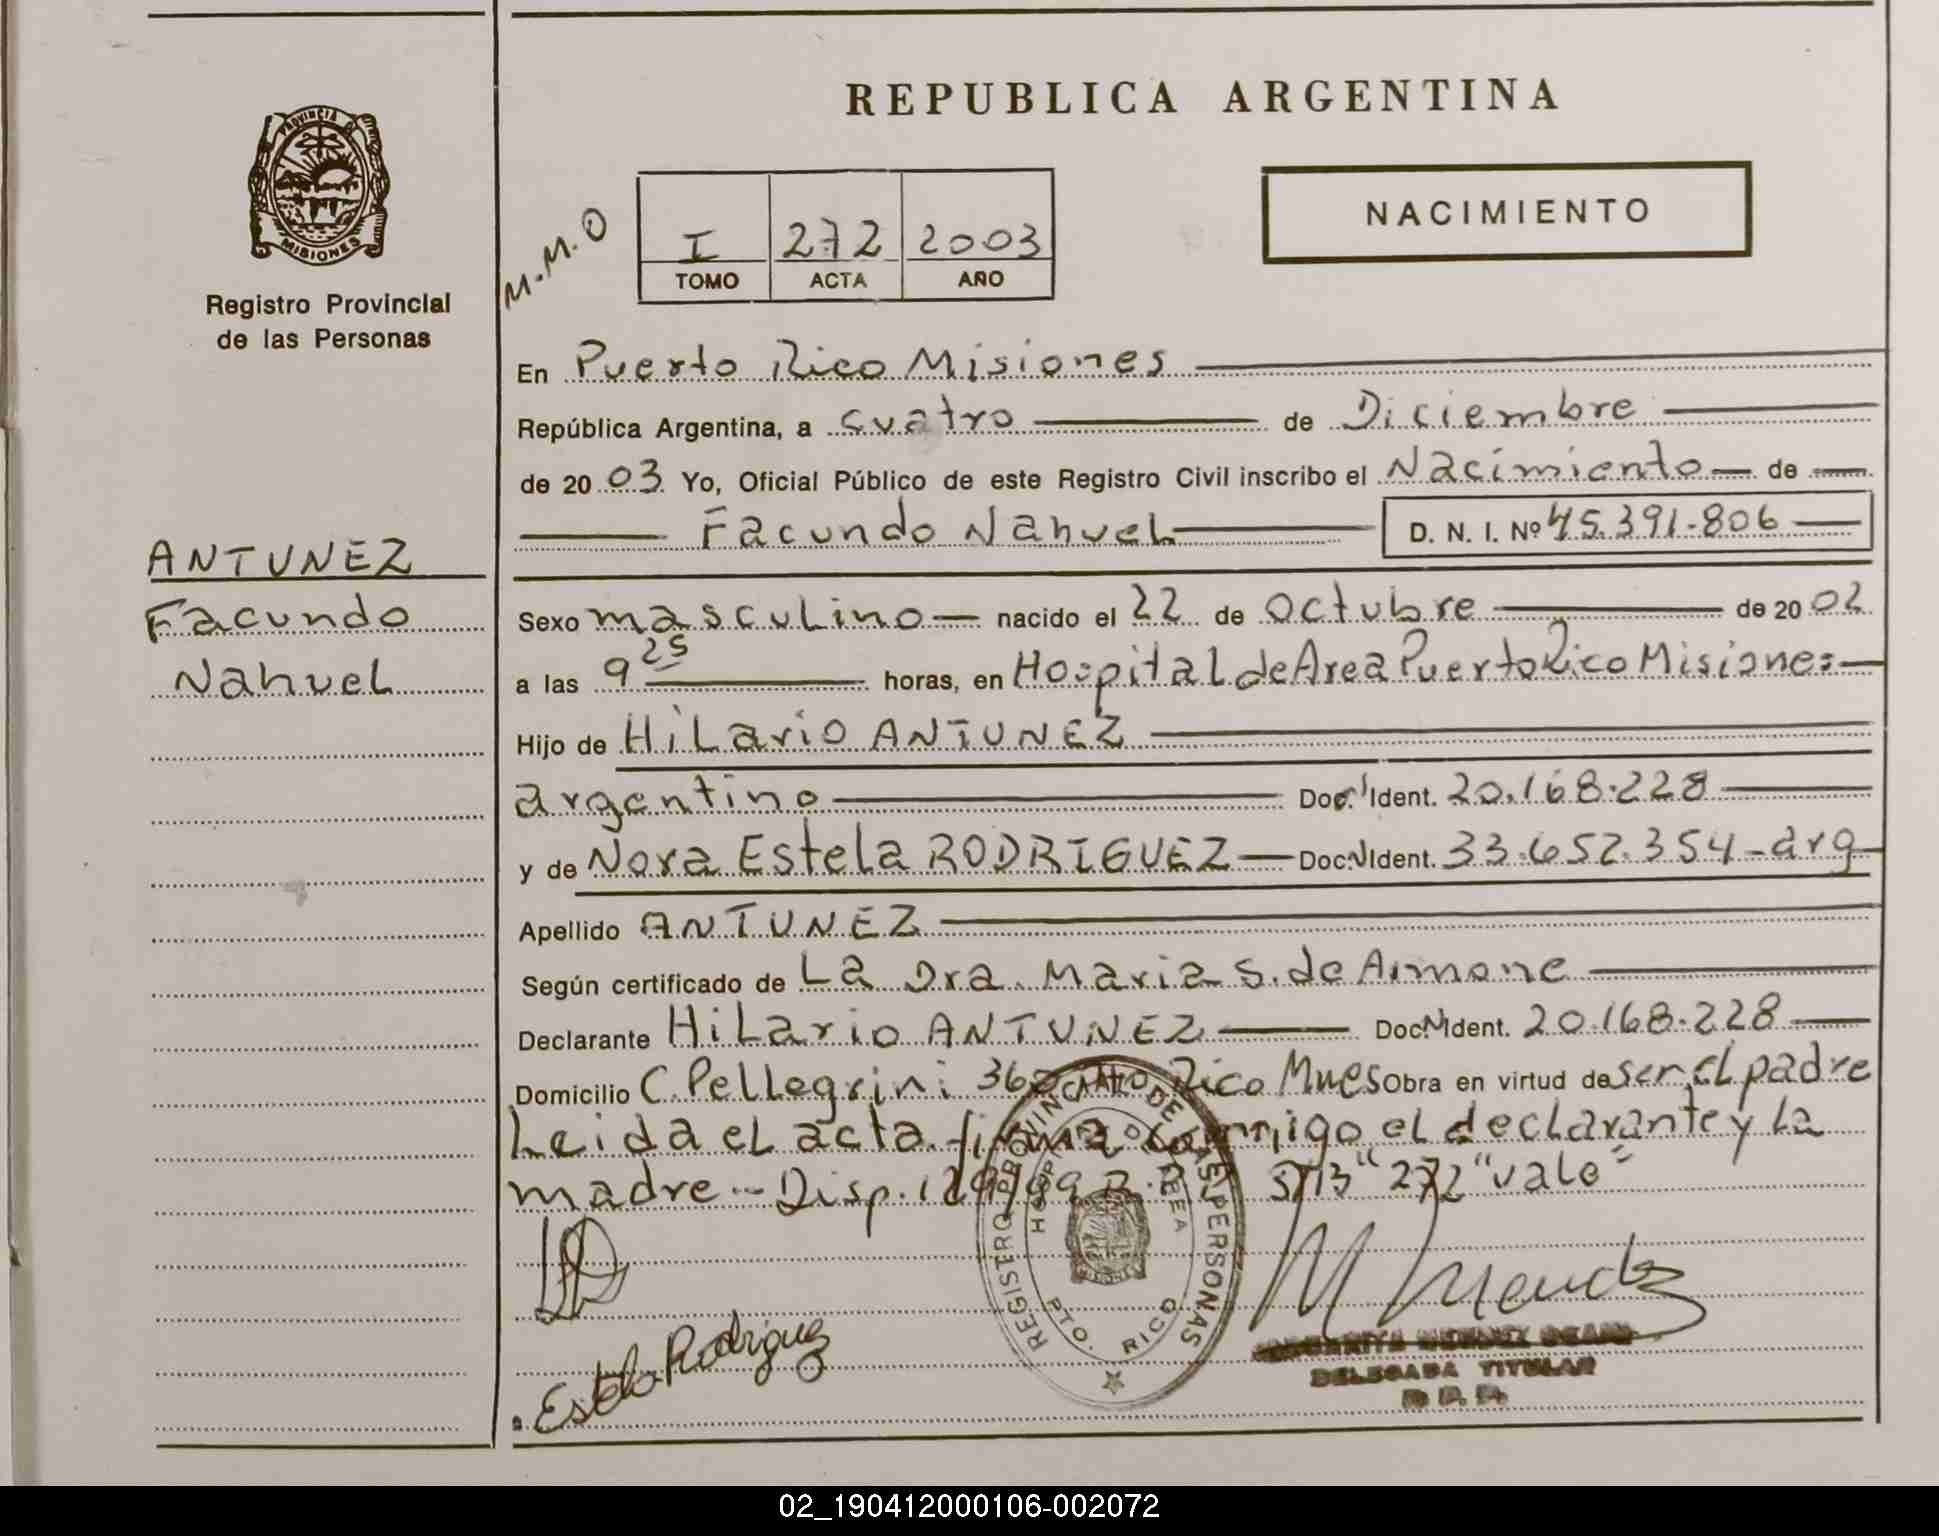 REPUBLICA ARGENTINA
PROVINCIA DE
MISIONES
Registro Provincial
de las Personas
M.M.O
I 272 2003
TOMO ACTA AÑO
NACIMIENTO
En Puerto Rico Misiones
República Argentina, a cuatro de Diciembre
de 20 03 Yo, Oficial Público de este Registro Civil inscribo el Nacimiento de
Facundo Nahuel D. N. I. Nº 45.391.806
ANTUNEZ
Facundo
Nahuel
Sexo masculino nacido el 22 de octubre de 20 02
a las 9 25 horas, en Hospital de Area Puerto Rico Misiones
Hijo de Hilario ANTUNEZ
argentino Doc. Ident. 20.168.228
y de Nora Estela RODRIGUEZ Doc. Ident. 33.652.354-arg
Apellido ANTUNEZ
Según certificado de La Dra. Maria S. de Aimone
Declarante Hilario ANTUNEZ Doc. Ident. 20.168.228
Domicilio C. Pellegrini Rico Mnes Obra en virtud de ser el padre
Leida el acta firma conmigo el declarante y la
madre -- Disp. "272" vale"
REGISTRO PROVINCIAL DE LAS PERSONAS
HOSP AREA
PTO. RICO
MISIONES
M Mendez
Estela Rodriguez
DELEGADA TITULAR
02_190412000106-002072